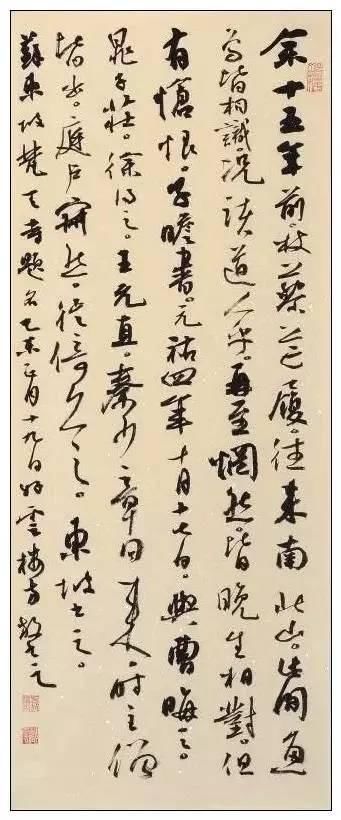 余十五年前。杖藜芒履。往来南北山。此間魚
鳥皆相識。況諸道人乎。再至惘然。皆晚生相對。但
有愴恨。子瞻書。元祐四年十月十七日。與曹晦之。
晁子莊。徐得之。王元直。秦少章同来。時主僧
皆出。庭户寂然。徙倚久之。東坡
蘇東坡梵天寺題名乙未正月十九日 雲樓方